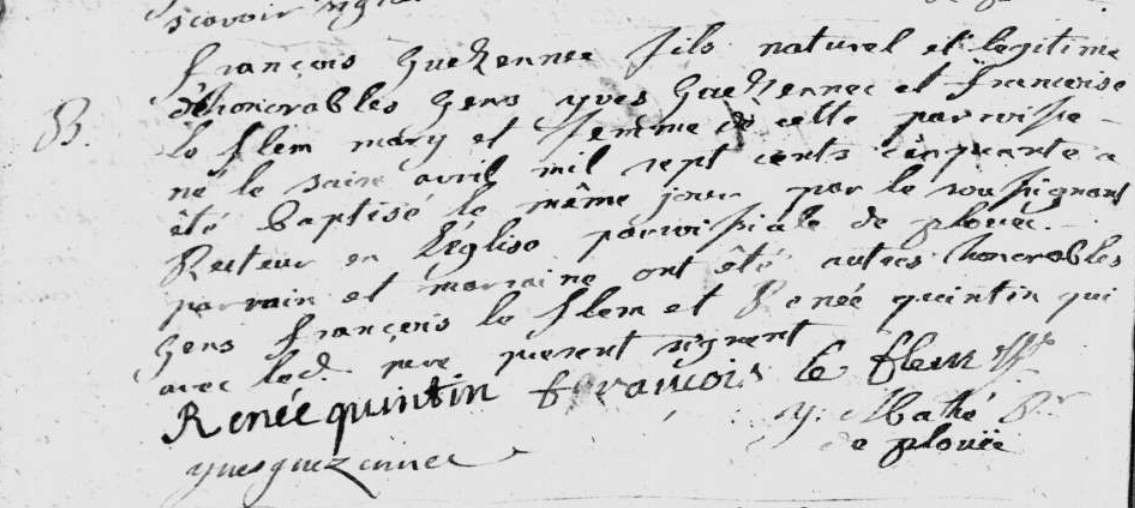 scavoir signe
françois Guezennec fils naturel et legitime
d'honorables Gens yves Guezennec et francoise
B. le flem mary et femme de cette parroisse
né le saize avril mil sept cents cinquante a
été baptisé le même jour par le soussignant
Recteur en L'église parroissiale de plouëc.
parrain et marraine ont été autres honorables
Gens françois le flem et Renée quintin qui
avec led. pere present signent
Renée quintin francois le flem
y: Mathé Rr
yves guezennec de plouëc